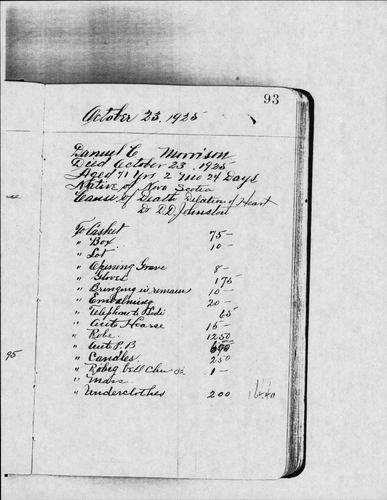 93
October 23, 1925
Daniel C Morrison
Died October 23, 1925
Aged 71 Yrs 2 Mo 24 Days
Native of Nova Scotia
Cause of Death Dilation of Heart
Dr D.D. Johnston
To Casket 75-
" Box 10-
" Lot
" Opening Grave 8-
" Gloves 175
" Bringing in remain 10-
" Embalming 20-
" Telephone to 65
" Auto Hearse 15-
" Robe 1250
" Auto P.B 600
" Candles 250
" bell 1-
" Mass
" Underclothes 200
95